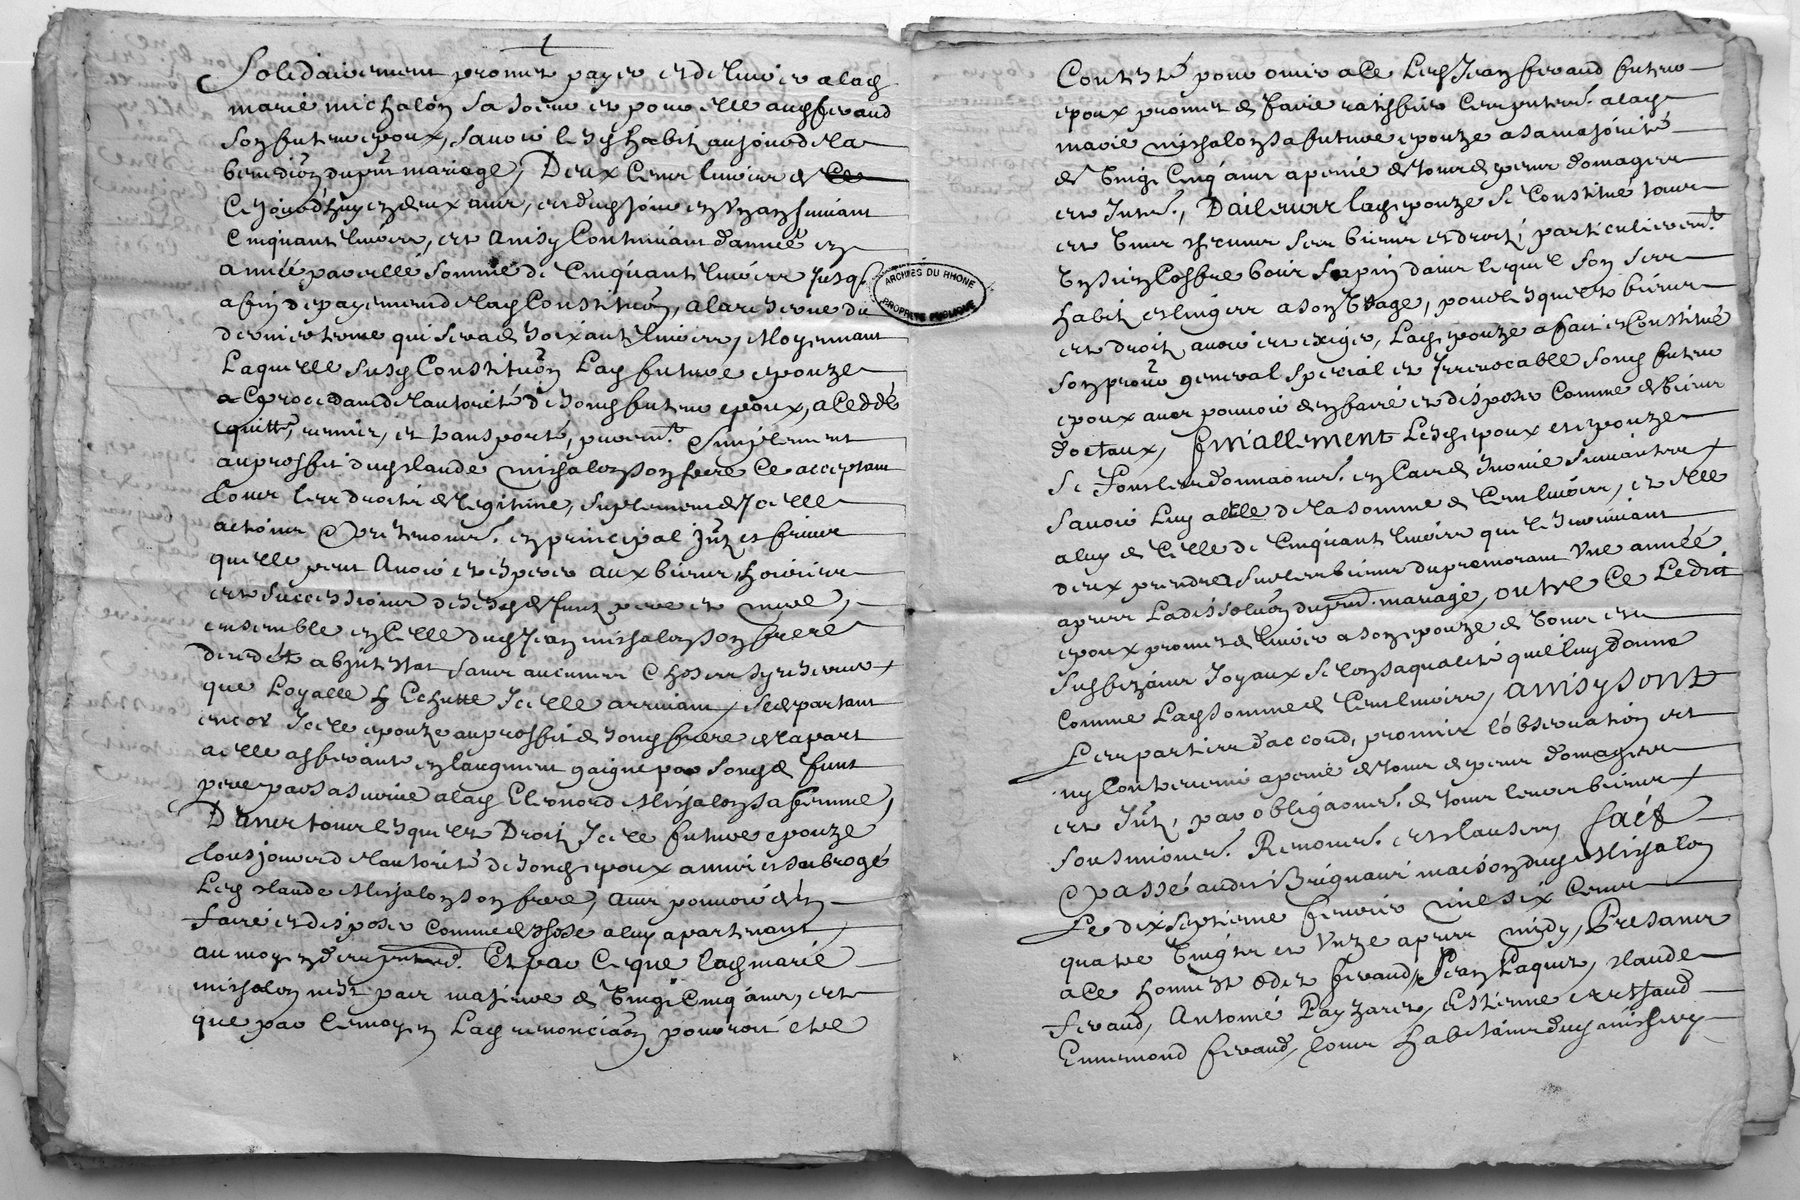 Solidairement promet payer et delivrer a lad
marie michalon sa soeur et pour elle aud feraud
son futur epoux, savoir lesd habitz au jour de la
benedion du pnt mariage, Deux Cent livres de
Ce jourdhuy en deux ans, et dud jour en un an suivant
Cinquante livres, et ainsy Continuant d'année en
année pareille somme de Cinquante livres jusqs
a fin de payement de lad Constituon, a la reserve du
dernier terme qui sera de soixante livres, Moyennant
Laquelle susd Constituon Lad future epouze
a procedant de l'autorité de sond futur epoux, a Ceddé
quitté, remis, et transporté, purem.t Simplement
au proffit dud Claude michalon son frere Ce acceptant
tous ses droitz de legitime, suplement d'Icelle
actions pretentions. en principal Intz et fruicts
quelle peut Avoir et esperer aux biens, hoiries
et successions de sesd deffuntz pere et mere,
ensemble en Celle dud Jean michalon son frere
decedé ab intestat sans aucunes Choses sy reserver
que Loyalle Echutte Icelle arrivant, se departant
encor Icelle epouze au proffit de sond frere de la part
a elle afferante en laugment gaigné par sond de funt
pere par sa survie a lad Eleonord Michalon sa femme,
Dans tous lesquels Droitz Icelle future epouze
tousjours de l'autorité de sond epoux a mis et subrogé
Led Claude Michalon son frere, avec pouvoir d'en
faire et disposer comme de Chose a luy apartenant
au moyen des pntes. Et par Ce que lad marie
michalon nest pas majeure de Vingt Cinq ans, et
que par le moyen Lad renonciaon pourroit etre
Contesté pour obvier a Ce Led Jean feraud futur
epoux promet de faire ratiffier Ces pntes. a lad
marie michalon sa future epouze a sa majorité
de Vingt Cinq ans a peine de tous depens domages
et Intz., D'ailleurs lad epouze se Constitue tous
et Uns Chacuns ses biens et droitz, particulierem.t
Un sien Coffre bois sapin dans lequel Son ses
habitz et linges a son Usage, pour lesquels biens
et droitz avoir et exiger, Lad epouze a fait et Constitué
son procur general special et Irrevocable sond futur
epoux avec pouvoir d'en faire et disposer Comme de biens
doctaux, finiallement Lesd epoux et epouze
se font les donnaons. en Cas de survie suivantes
Savoir Luy a elle de la somme de Cent livres, et elle
a luy de Celle de Cinquante livres que le survivant
deux prendra sur les biens du premorant Une année
apres La dissoluon du pnt. mariage, outre Ce Ledit
epoux promet de livrer a son epouze de tous et
susbenans Joyaux selon sa qualité quil luy donne
Comme Lad somme de Cent livres, ainsy sont
Les parties d'accord, promis l'observation et
ny Contrevenir a peine de tous depens domages
et Intz, par obligaons. de tous leurs biens
sousmions. Renons. et Clauses, fait
passé aud Brignais maison dud Michalon
Le dix septieme fevrier mil six Cens
quatre Vingtz et Unze apres midy, Presans
a Ce honnest Odet feraud, Jean Paquet, Claude
feraud, Antoine Payzaret, Estienne
Ennemond feraud, tous habitans dud
ARCHIVES DU RHONE
PROPRIETE PUBLIQUE